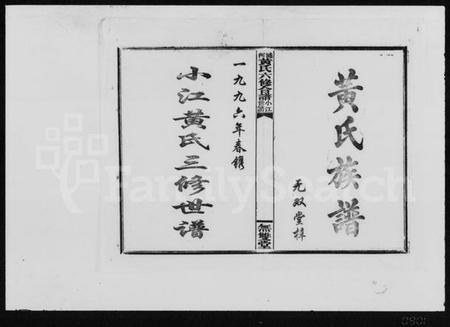 黄氏族譜
无双堂梓
黄氏六修合譜
小江
無雙堂
一九九六年春镌
小江黄氏三修世谱
FamilySearch